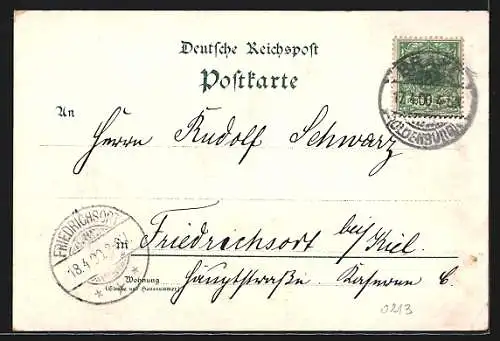 Deutsche Reichspost
Postkarte
An
Herrn Rudolf Schwarz
in Friedrichsort bei/Kiel.
Wohnung
(Straße und Hausnummer)
Hauptstraße. Kaserne C.
FRIEDRICHSORT
18.4.00
17.4.00
(OLDENBURG)
0213